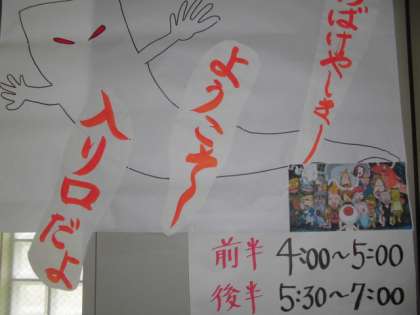 ばけやしきー
ようこそ〜
入り口だよ
前半 4:00〜5:00
後半 5:30〜7:00